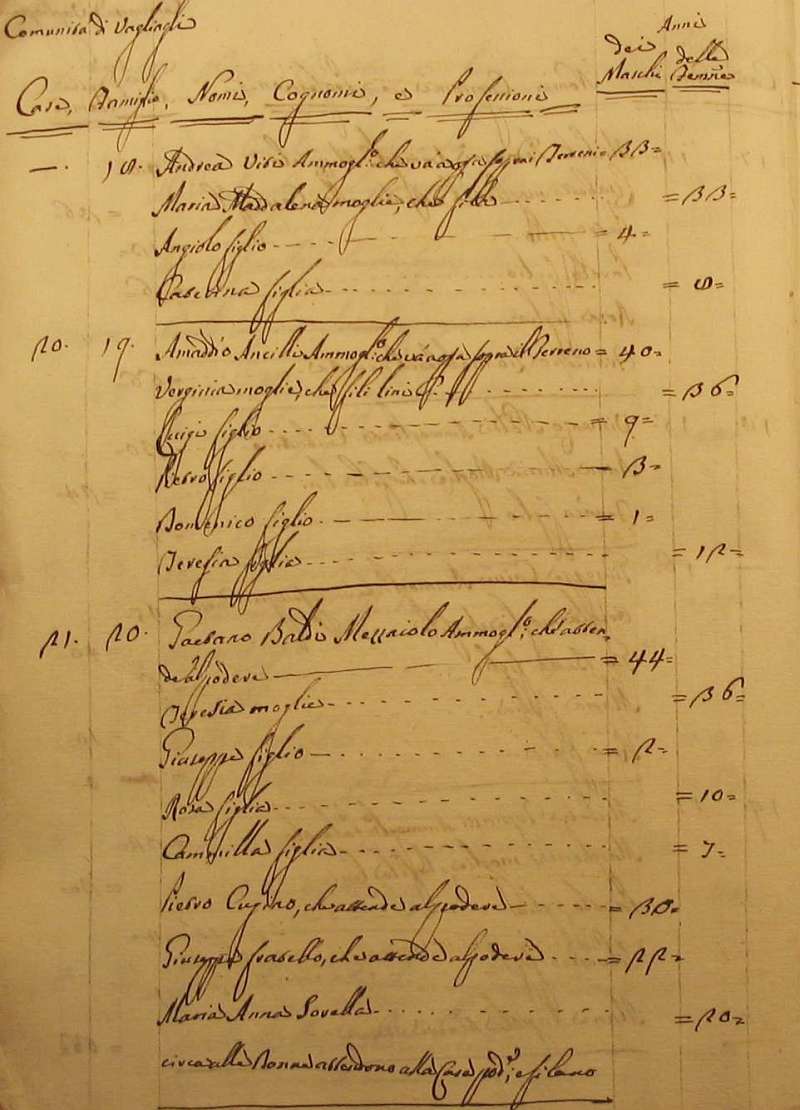 Comunità di Vagliagli
Anni
dei Maschi
delle Femmè
Case, Famiglie, Nomi, Cognomi, e Professioni
—. 18. Andrea Ammogl:º che và a opra Terreni = 33 =
Maria Maddalena moglie, che fila = 33 =
Angiolo figlio = 4 =
Caterina figlia = 8 =
20. 19. Amaddio Ancilli Ammogl:º che và a opra sopra il Terreno = 40 =
Verginia moglie, che fili lini = 36 =
Luigi figlio = 9 =
Pietro figlio = 3 =
Domenico figlio = 1 =
Teresia figlia = 12 =
21. 20. Gaetano Baldi Mezzaiolo Ammogl:º che atten
de al podere = 44 =
Teresia moglie = 36 =
Giuseppe figlio = 2 =
Rosa figlia = 10 =
Cammilla figlia = 7 =
Pietro Cugino, che attende al podere = 30 =
Giuseppe fratello, che attende al podere = 22 =
Maria Anna Sorella = 20 =
circa alle Donne attendono alla Casa, pod:e, e filano